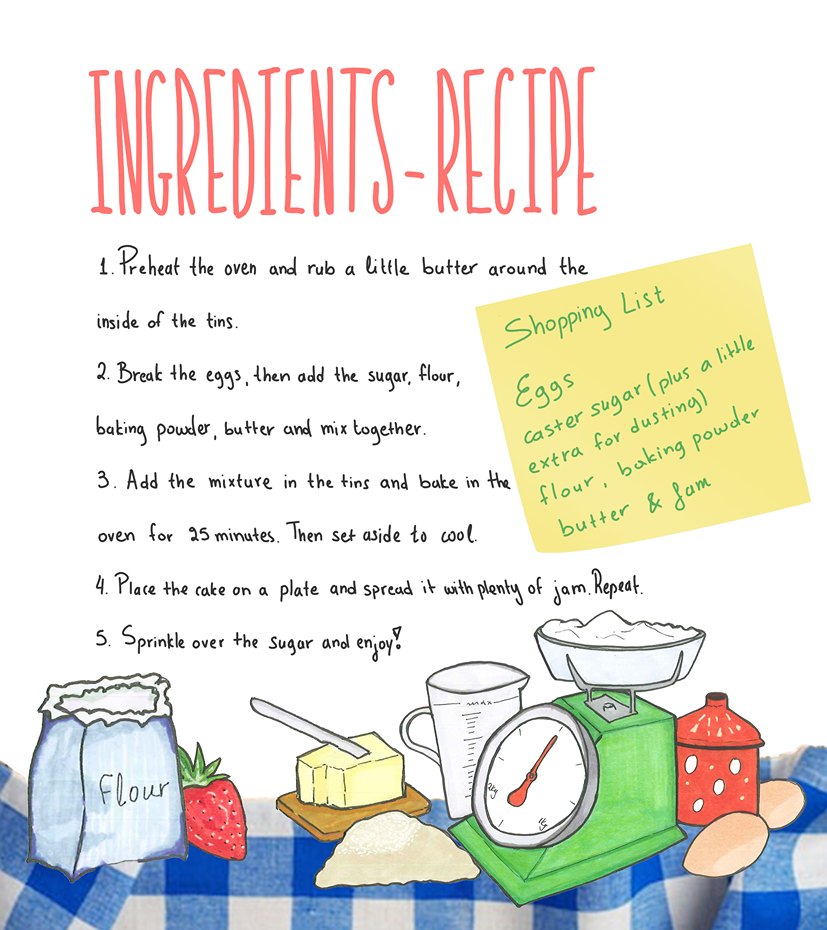 INGREDIENTS-RECIPE
1. Preheat the oven and rub a little butter around the
inside of the tins.
2. Break the eggs, then add the sugar, flour,
baking powder, butter and mix together.
3. Add the mixture in the tins and bake in the
oven for 25 minutes. Then set aside to cool.
4. Place the cake on a plate and spread it with plenty of jam. Repeat.
5. Sprinkle over the sugar and enjoy!
Shopping List
Eggs
caster sugar (plus a little
extra for dusting)
flour, baking powder
butter & Jam
Flour
max